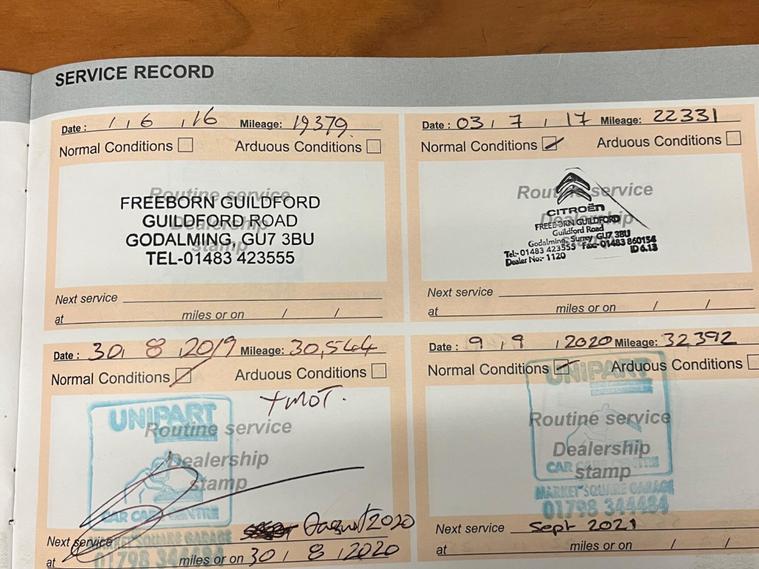 SERVICE RECORD
Date : 1 / 6 / 16 Mileage: 19379
Normal Conditions Arduous Conditions
Routine service
Dealership
stamp
FREEBORN GUILDFORD
GUILDFORD ROAD
GODALMING, GU7 3BU
TEL-01483 423555
Next service
at miles or on / /
Date : 03 / 7 / 17 Mileage: 22331
Normal Conditions Arduous Conditions
Routine service
Dealership
stamp
CITROËN
FREEBORN GUILDFORD
Guildford Road
Godalming, Surrey GU7 3BU
Tel:- 01483 423555 Fax:- 01483 860154
Dealer No:- 1120 ID 6.13
Next service
at miles or on / /
Date : 30 / 8 / 2019 Mileage: 30,544
Normal Conditions Arduous Conditions
+ MOT.
UNIPART
Routine service
Dealership
stamp
CAR CARE CENTRE
MARKET SQUARE GARAGE
01798 344484
Next service August 2020
at miles or on 30 / 8 / 2020
Date : 9 / 9 / 2020 Mileage: 32,392
Normal Conditions Arduous Conditions
UNIPART
Routine service
Dealership
stamp
CAR CARE CENTRE
MARKET SQUARE GARAGE
01798 344484
Next service Sept 2021
at miles or on / /